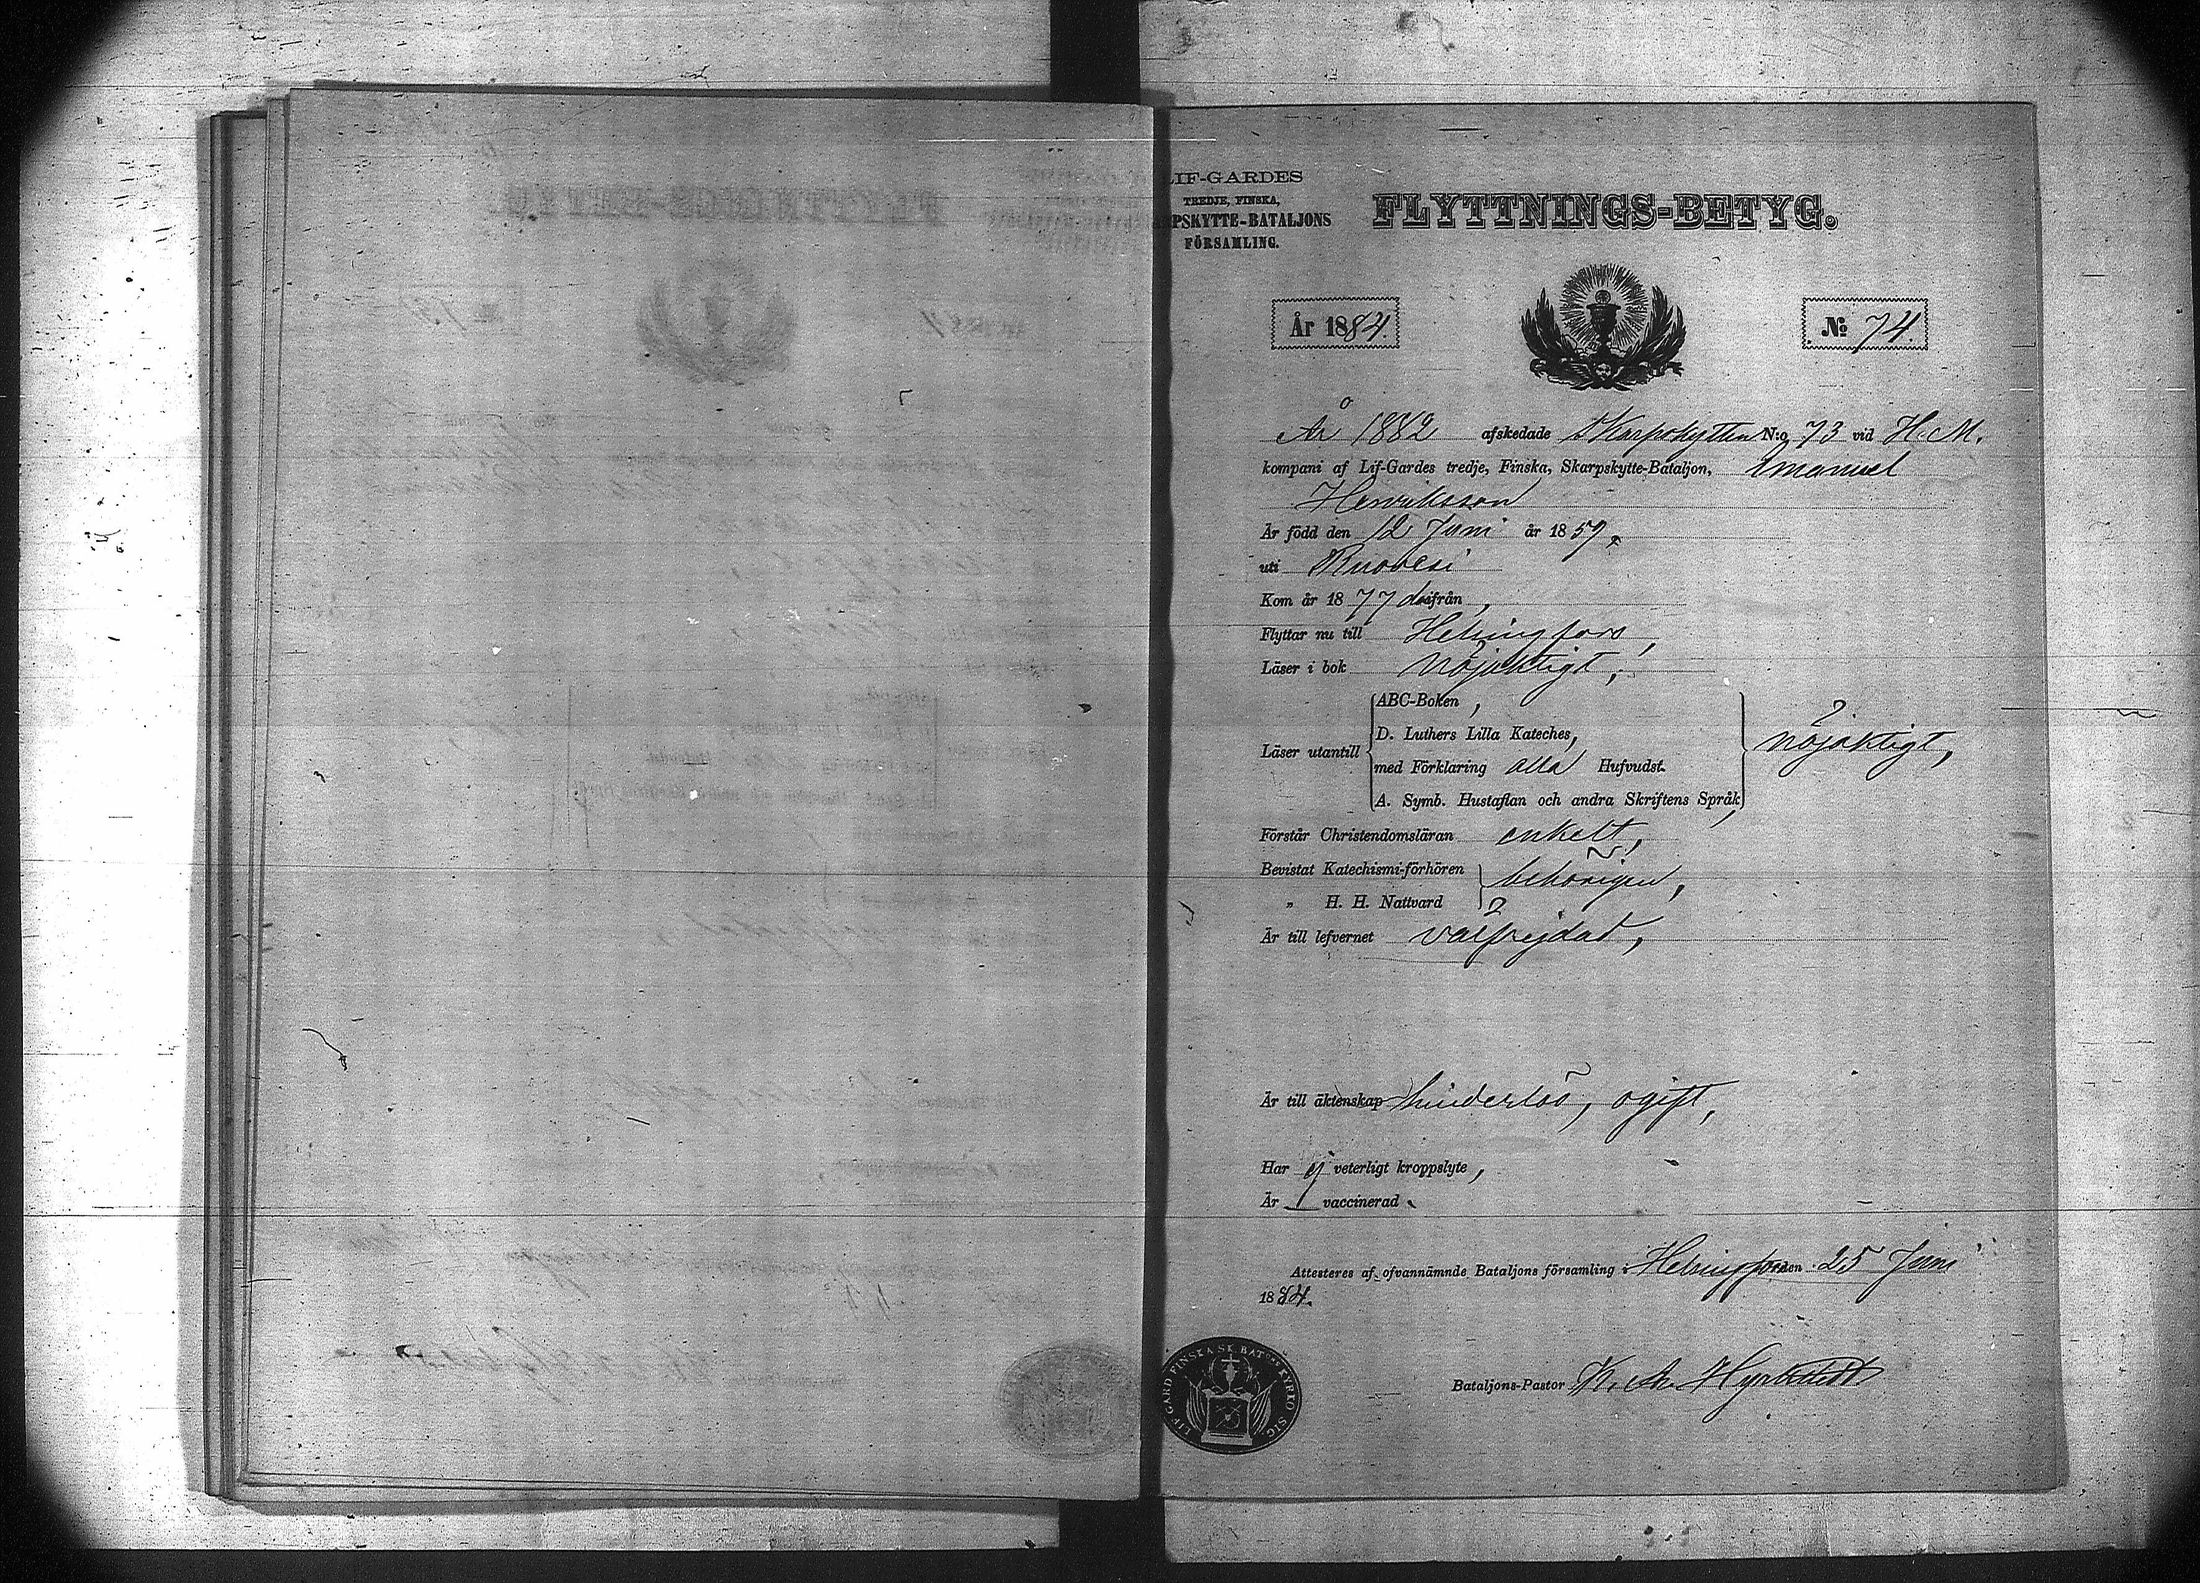 LIF-GARDES
TREDJE, FINSKA,
PSKYTTE-BATALJONS
FÖRSAMLING.
FLYTTNINGS-BETYG.
År 1884.
№ 74.
År 1882 afskedade Skarpskytten N:o 73 vid H. M.
kompani af Lif-Gardes tredje, Finska, Skarpskytte-Bataljon, Emanuel
Henriksson
Är född den 12 Juni år 1859,
uti Ruovesi
Kom år 1877 därifrån,
Flyttar nu till Helsingfors,
Läser i bok nöjaktigt,
Läser utantill
ABC-Boken,
D. Luthers Lilla Kateches,
med Förklaring alla Hufvudst.
A. Symb. Hustaflan och andra Skriftens Språk,
nöjaktigt,
Förstår Christendomsläran enkelt,
Bevistat Katechismi-förhören
„ H. H. Nattvard
behörigen,
Är till lefvernet välfrejdad,
Är till äktenskap hinderlös, ogift,
Har ej veterligt kroppslyte,
Är vaccinerad
Attesteres af ofvannämnde Bataljons församling i Helsingfors den 25 Juni
1884.
LIF GARD FINSKA SK. BAT:NS KYRKO SIG.
Bataljons-Pastor K. A. Hyrkstedt